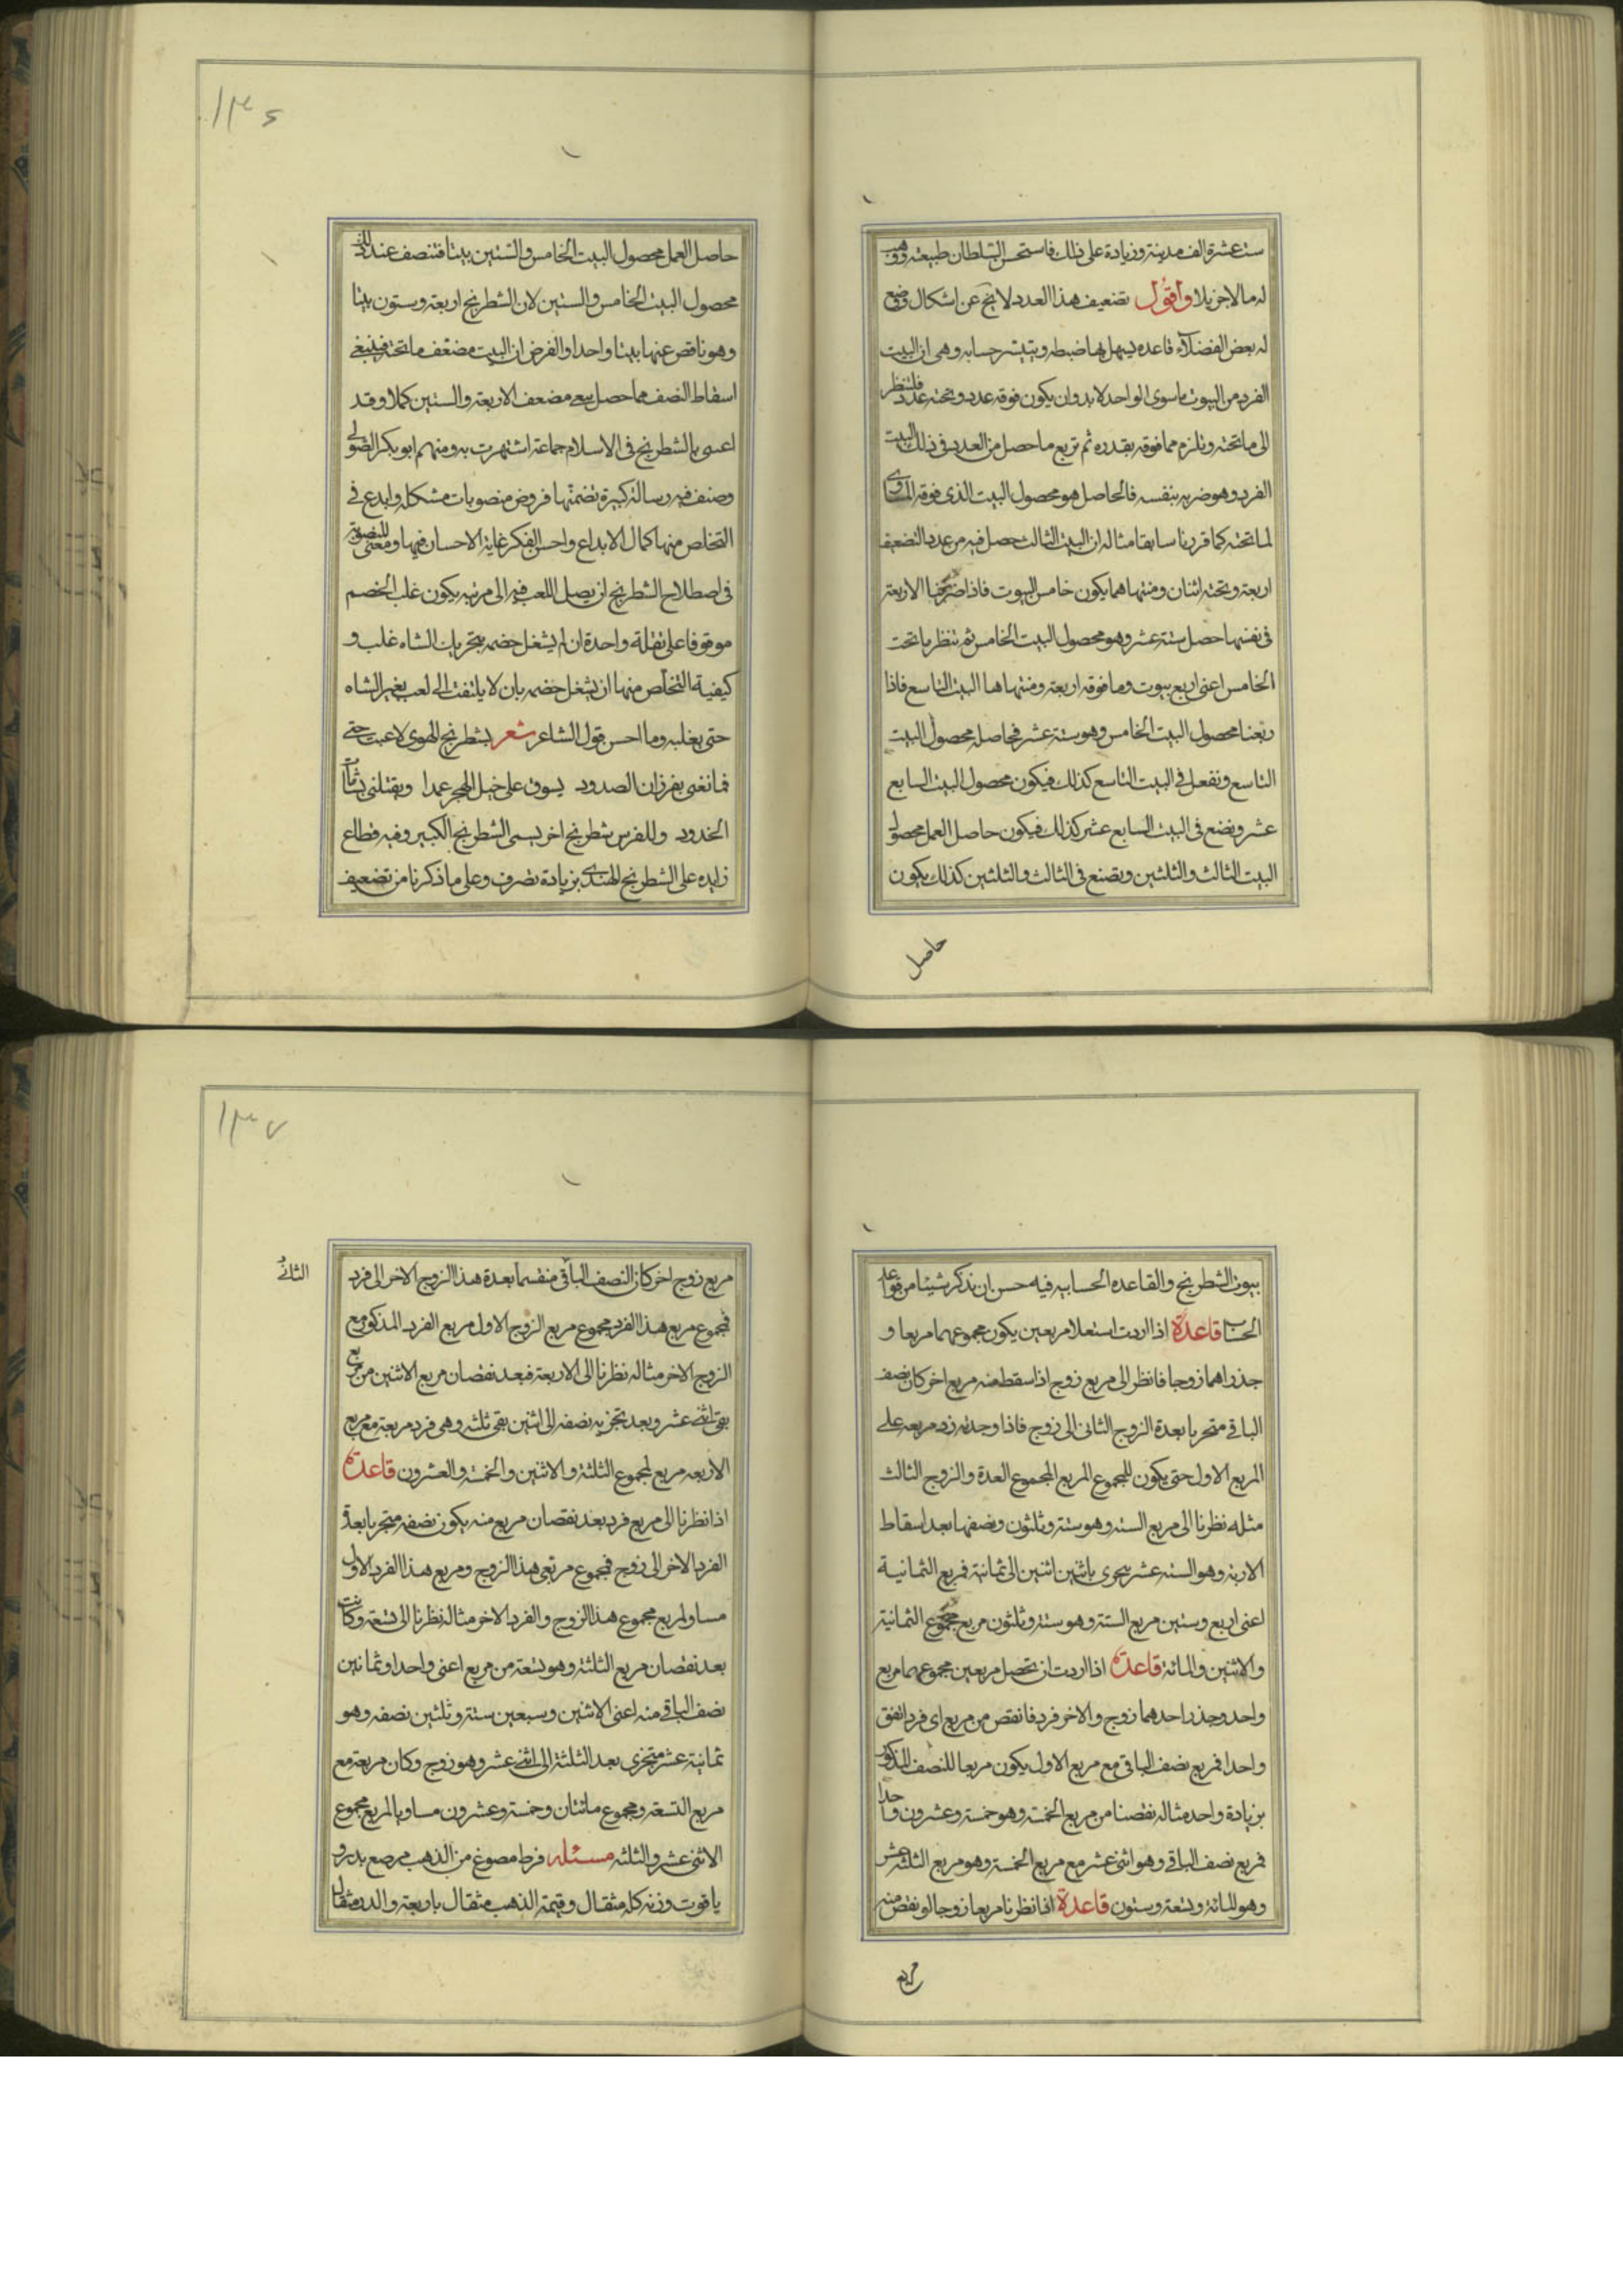 ١٣٦
ست عشرة الف مدينة وزيادة على ذلك فاستحسن السلطان طبيعته ووهب
له مالا جزيلا واقول تضعيف هذا العدد لا يخ عن اشكال وضع
له بعض الفضلاء قاعده يسهل بها ضبطه ويتيسر حسابه وهى ان البيت
الفرد من البيوت ما سوى الواحد لا بد وان يكون فوقه عدد وتحته عدد فلتنظر
الى ما تحته وتلزم مما فوقه بقدره ثم تربع ما حصل من العدد فى ذلك البيت
الفرد وهو ضربه بنفسه فالحاصل هو محصول البيت الذى فوقه المساوى
لما تحته كما قررنا سابقا مثاله ان البيت الثالث حصل فيه من عدد التضعيف
اربعة وتحته اثنان ومنتهاهما يكون خامس البيوت فاذا ضربنا الاربعة
فى نفسها حصل ستة عشر وهو محصول البيت الخامس ثم تنظر ما تحت
الخامس اعنى اربع بيوت وما فوقه اربعة ومنتهاها البيت التاسع فاذا
ربعنا محصول البيت الخامس وهو ستة عشر فحاصله محصول البيت
التاسع ونفعل فى البيت التاسع كذلك فيكون محصول البيت السابع
عشر ونضع فى البيت السابع عشر كذلك فيكون حاصل العمل محصول
البيت الثالث والثلثين ونصنع فى الثالث والثلثين كذلك يكون
حاصل
حاصل العمل محصول البيت الخامس والستين بيتا فتنصف عند ذلك
محصول البيت الخامس والستين لان الشطرنج اربعة وستون بيتا
وهو ناقص عنها بيتا واحدا والفرض ان البيت مضعف ما تحته فينبغى
اسقاط النصف مما حصل يبقى مضعف الاربعة والستين كملا وقد
اعتنى بالشطرنج فى الاسلام جماعة اشتهرت به ومنهم ابو بكر الصولى
وصنف فيه رسالة كبيرة تضمنها فروض منصوبات مشكله وابدع فى
التخلص منها كمال الابداع واحسن الفكر غاية الاحسان فيها ومعنى المنصوبة
فى اصطلاح الشطرنج ان يصل اللعب فيه الى مرتبه يكون غلب الخصم
موقوفا على نقلة واحدة ان لم يشغل خصمه بتحريات الشاه غلب و
كيفية التخلص منها ان يشغل خصمه بان لا يلتفت الى لعب بغير الشاه
حتى يغلبه وما احسن قول الشاعر شعر بشطرنج الهوى لاعبت حتى
فمانعنى بفرزان الصدود يسوق على خيل الهجر عمدا ويقتلنى بشامات
الخدود وللفرس شطرنج اخر يسمى الشطرنج الكبير وفيه قطاع
زايده على الشطرنج الهندى بزيادة تصرف وعلى ما ذكرنا من تضعيف
١٣٧
بيوت الشطرنج والقاعده الحسابيه فيه حسن ان نذكر شيئا من قواعد
الحساب قاعدة اذا اردت استعلام مربعين يكون مجموعهما مربعا و
جذراهما زوجا فانظر الى مربع زوج اذا سقط منه مربع اخر كان نصف
الباقى متجزيا بعدة الزوج الثانى الى زوج فاذا وجدته زد مربعه على
المربع الاول حتى يكون المجموع المربع المجموع العدة والزوج الثالث
مثله نظرنا الى مربع الستة وهو ستة وثلثون ونصفها بعد اسقاط
الاربعة وهو الستة عشر يتجزى باثنين اثنين الى ثمانية فمربع الثمانية
اعنى اربع وستين مربع الستة وهو ستة وثلثون مربع مجموع الثمانية
والاثنين والمائة قاعدة اذا اردت ان تحصل مربعين مجموعهما مربع
واحد وجذر احدهما زوج والاخر فرد فانقص من مربع اى فرد اتفق
واحدا فمربع نصف الباقى مع مربع الاول يكون مربعا للنصف المذكور
بزيادة واحد مثاله نقصنا من مربع الخمسة وهو خمسة وعشرون واحدا
فمربع نصف الباقى وهو اثنى عشر مع مربع الخمسة وهو مربع الثلثة عشر
وهو المائة وتسعة وستون قاعدة اذا نظرنا مربعا زوجا لو نقص منه
مربع
مربع زوج اخر كان النصف الباقى منقسما بعدة هذا الزوج الاخر الى فرد
فمجموع مربع هذا الفرد مجموع مربع الزوج الاول مربع الفرد المذكور مع
الزوج الاخر مثاله نظرنا الى الاربعة فبعد نقصان مربع الاثنين من مربع
بقى اثنى عشر وبعد تجزيه نصفه الى اثنين بقى ثلثه وهى فرد مربعة مع مربع
الاربعه مربع لمجموع الثلثة والاثنين والخمسة والعشرون قاعدة
اذا نظرنا الى مربع فرد بعد نقصان مربع منه يكون نصفه متجزيا بعدة
الفرد الاخر الى زوج فمجموع مربعى هذا الزوج ومربع هذا الفرد الاول
مساو لمربع مجموع هذا الزوج والفرد الاخر مثاله نظرنا الى تسعة وكانت
بعد نقصان مربع الثلثة وهو تسعة من مربع اعنى واحدا وثمانين
نصف الباقى منه اعنى الاثنين وسبعين ستة وثلثين نصفه وهو
ثمانية عشر متجزى بعد الثلثة الى اثنى عشر وهو زوج وكان مربعة مع
مربع التسعة ومجموع مائتان وخمسة وعشرون مساويا لمربع مجموع
الاثنى عشر والثلثه مسئله قرط مصوغ من الذهب مرصع بدر و
ياقوت وزنه كله مثقال وقيمة الذهب مثقال باربعة والدر مثقال
الثانى